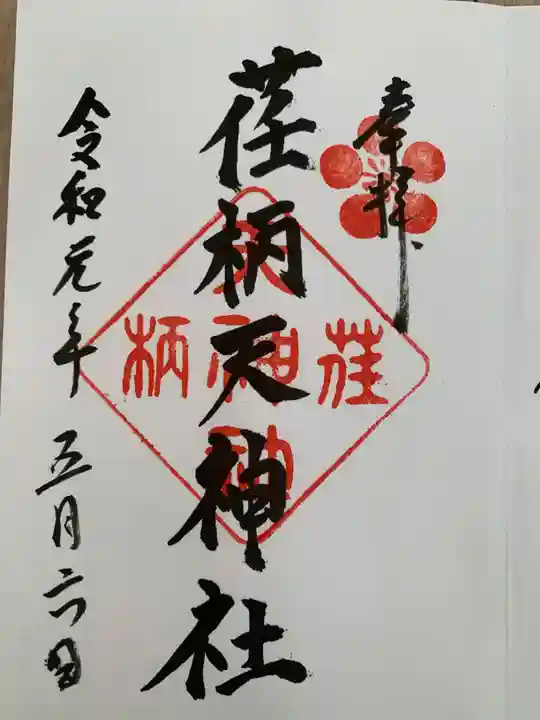 奉拝
荏柄天神社
荏柄天神社
令和元年五月六日